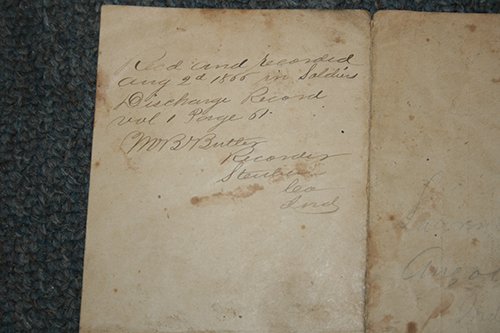 Recd and recorded
Aug 2d 1866 in Soldiers
Discharge Record
Vol 1 Page 61
M B Butler
Recorder
Steuben
Co
Ind